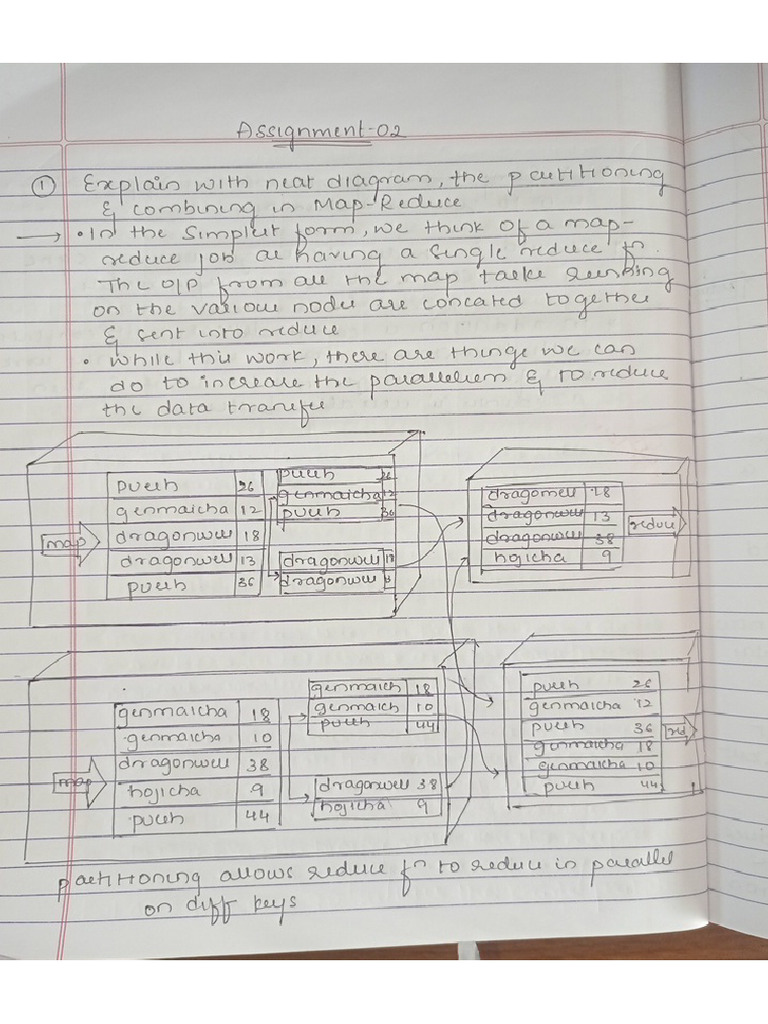 Assignment-02
① Explain with neat diagram, the partitioning
& combining in Map-Reduce
→ • In the simplest form, we think of a map-
reduce job as having a single reduce fn.
The O/P from all the map tasks running
on the various nodes are concated together
& sent into reduce
• While this work, there are things we can
do to increase the parallelism & to reduce
the data transfer
map
puerh 26
genmaicha 12
dragonwell 18
dragonwell 13
puerh 36
puerh 26
genmaicha 12
puerh 36
dragonwell 18
dragonwell
dragonwell 18
dragonwell 13
dragonwell 38
hojicha 9
reduce
map
genmaicha 18
genmaicha 10
dragonwell 38
hojicha 9
puerh 44
genmaich 18
genmaich 10
puerh 44
dragonwell 38
hojicha 9
puerh 26
genmaicha 12
puerh 36
genmaicha 18
genmaicha 10
puerh 44
red
partitioning allows reduce fn to reduce in parallel
on diff keys